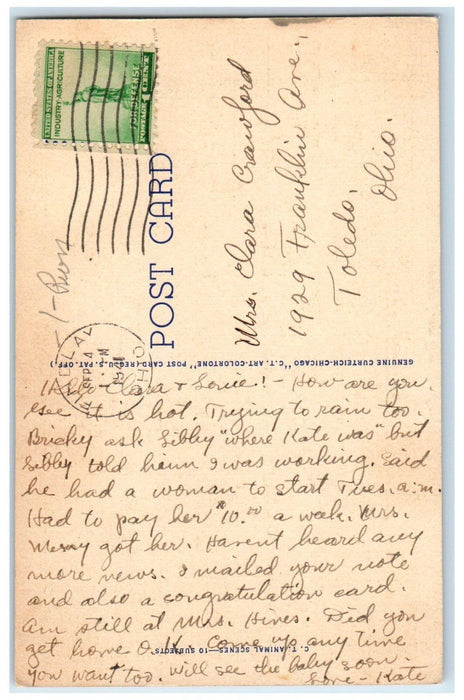 UNITED STATES OF AMERICA
INDUSTRY-AGRICULTURE
FOR DEFENSE
POSTAGE 1 CENT
POST CARD
Mrs. Clara Crawford
1929 Franklin Ave.,
Toledo,
Ohio.
SEP 4
OHIO
GENUINE CURTEICH-CHICAGO "C.T. ART-COLORTONE" POST CARD (REG. U.S. PAT. OFF.)
Hello Clara & !- How are you.
see it is hot. Trying to rain too.
Bricky ask Libby "where Kate was" but
Libby told him I was working. Said
he had a woman to start Tues. a.m.
Had to pay her $10.00 a week. Mrs.
got her. Havent heard any
more news. I mailed your note
and also a congratulation card.
Am still at Mrs. Hines. Did you
get home O.K. Come up any time
you want too. will see the baby soon.
Love - Kate
C. T. ANIMAL SCENES-10 SUBJECTS